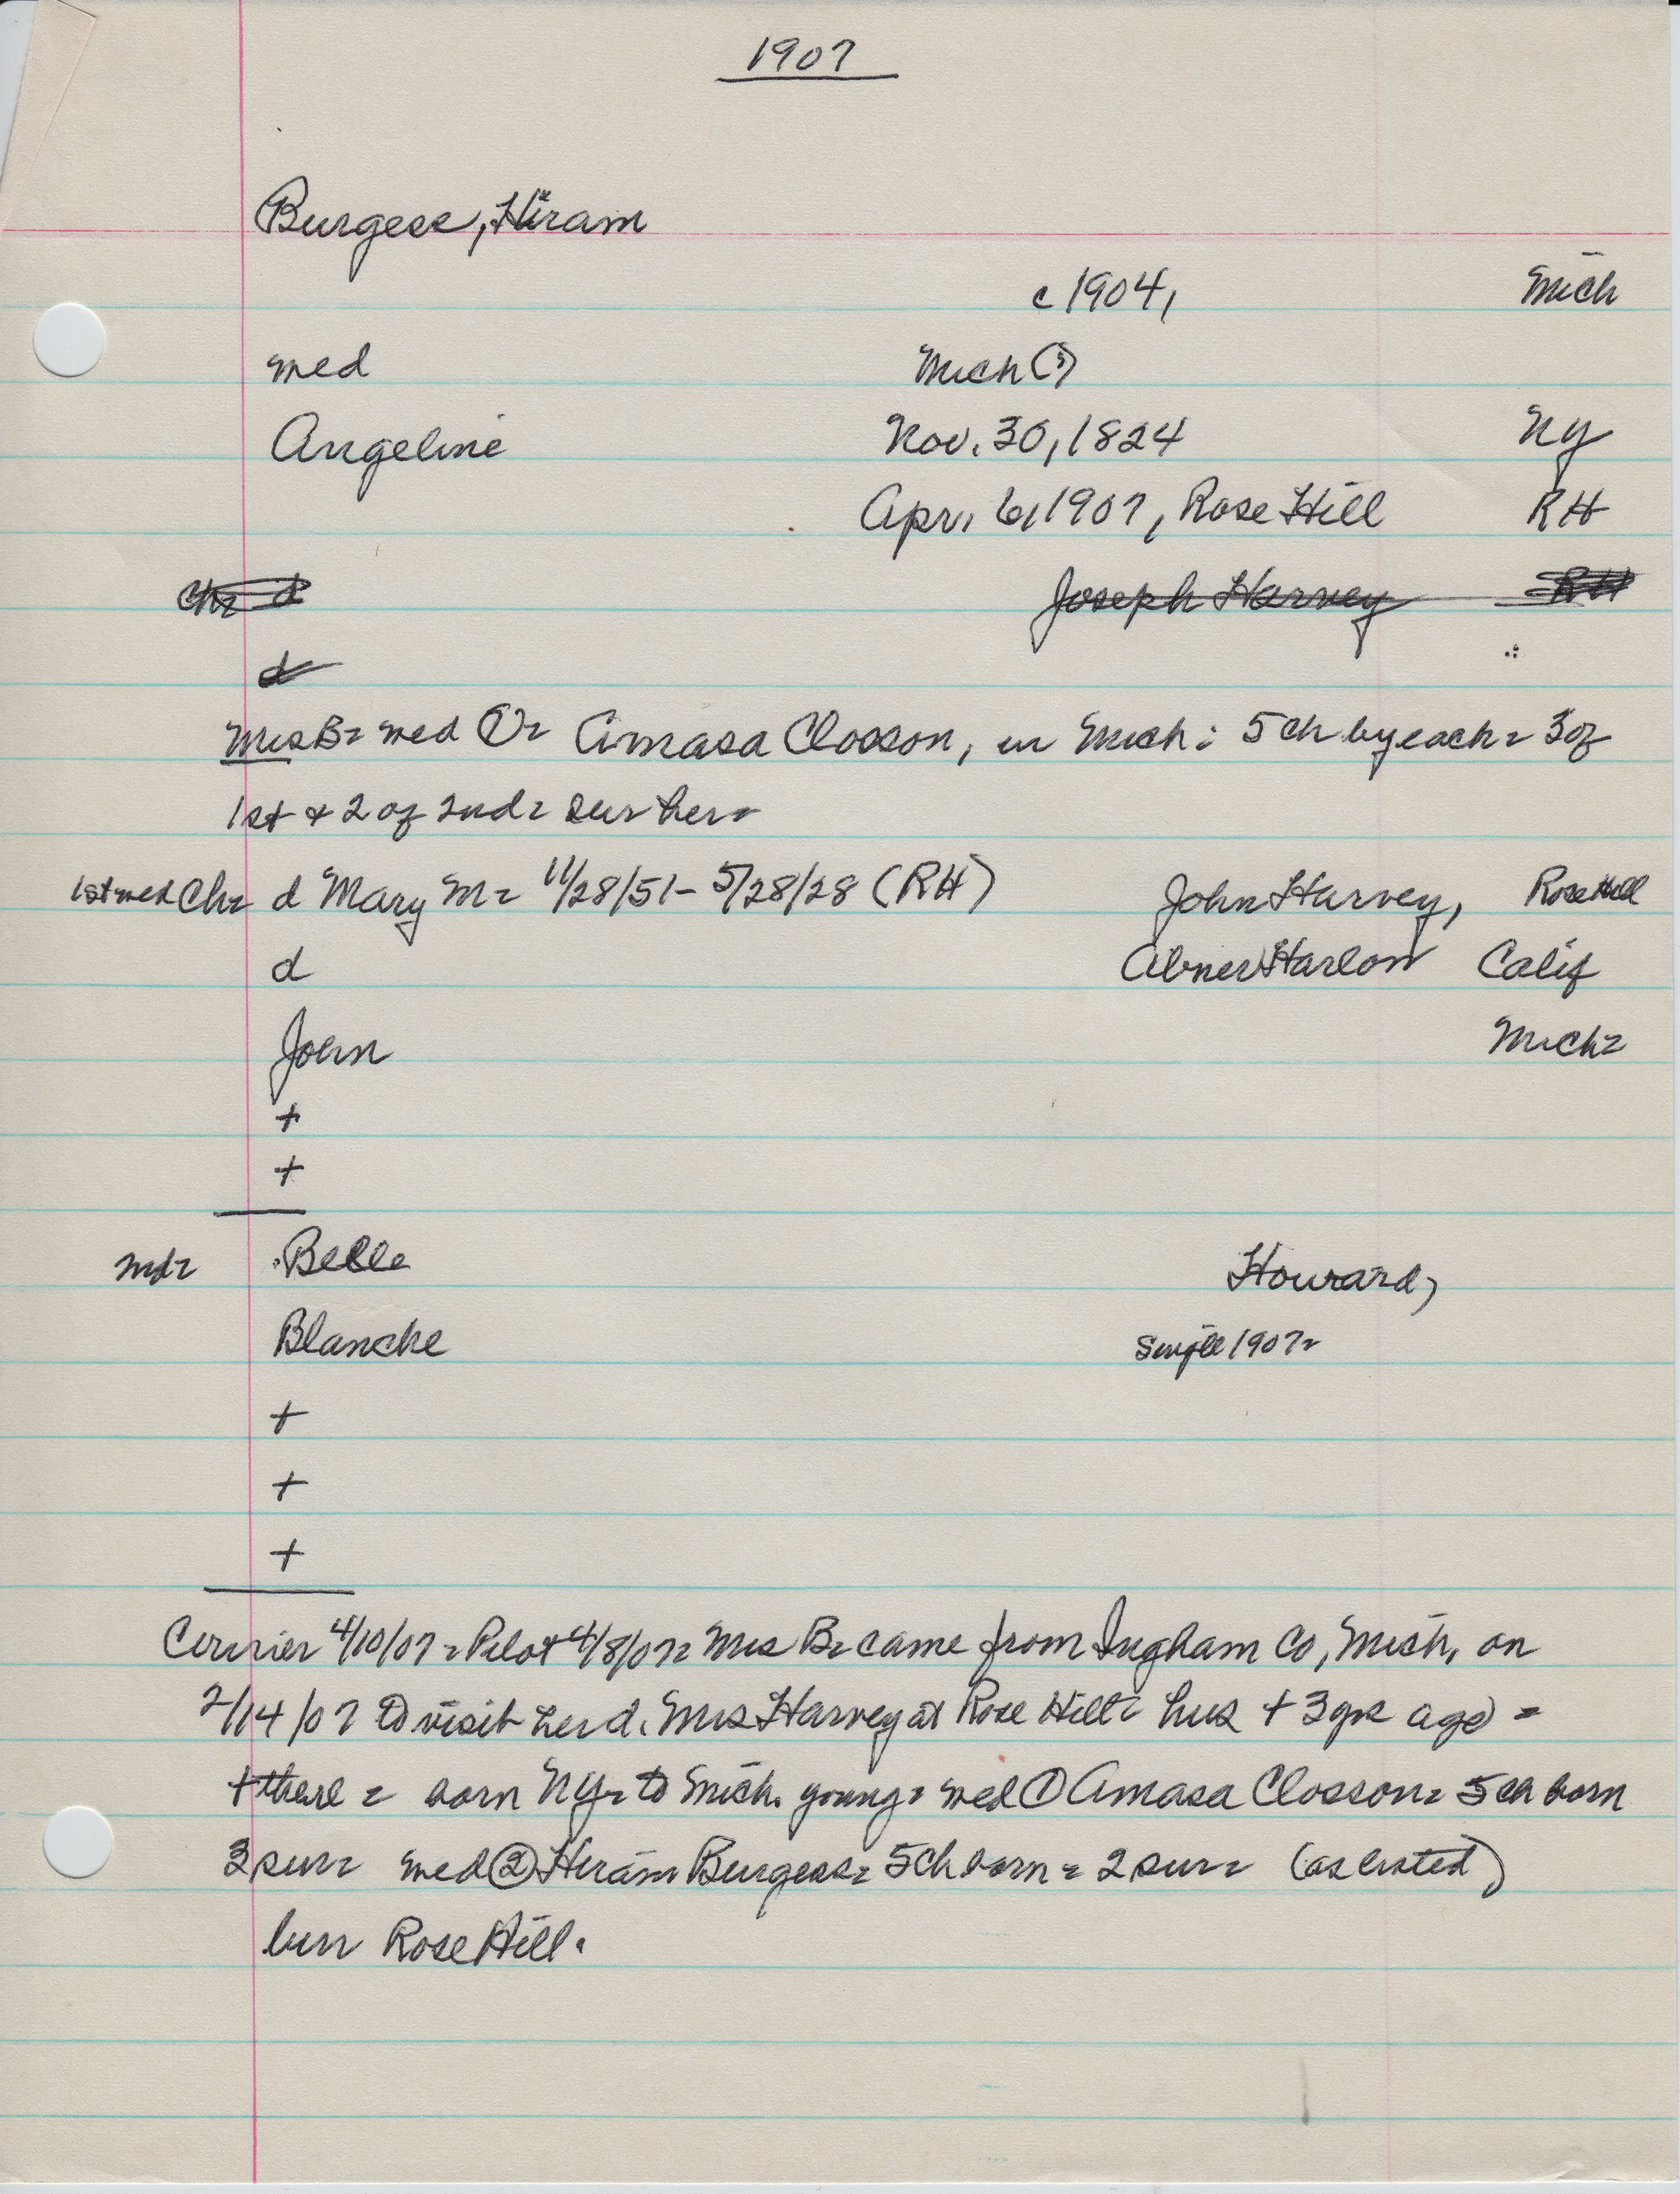 1907
Burgess, Hiram
c 1904, Mich
med Mich (?)
Angeline Nov. 30, 1824 NY
Apr. 6, 1907, Rose Hill RH
Ch= d Joseph Harvey RH
d
Mrs B= med ①= Amasa Closson, in Mich: 5 ch by each= 3 of
1st + 2 of 2nd= sur her=
1st med Ch= d Mary M= 11/28/51 - 5/28/28 (RH) John Harvey, Rose Hill
d Abner Harlow Calif
John Mich=
+
+
md= Belle Howard,
Blanche Single 1907=
+
+
+
Courier 4/10/07= Pilot 4/8/07= Mrs B= came from Ingham Co, Mich, on
2/14/07 to visit her d. Mrs Harvey at Rose Hill= hus + 3 yrs ago =
+ there = born NY= to Mich. young= med ① Amasa Closson= 5 ch born
3 sur= med ② Hiram Burgess= 5 ch born = 2 sur= (as listed)
bur Rose Hill.